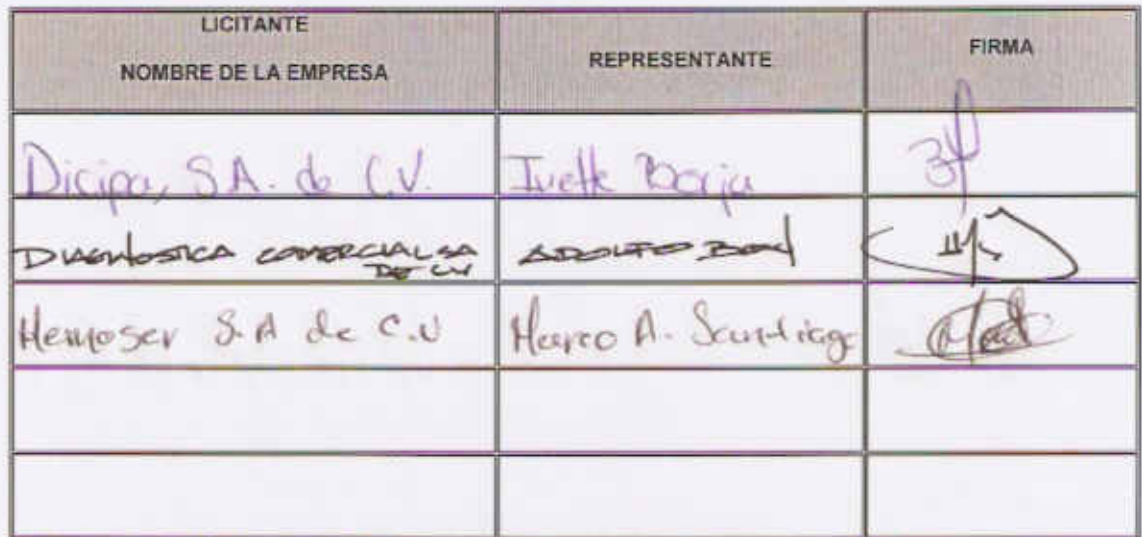 LICITANTE
NOMBRE DE LA EMPRESA
REPRESENTANTE
FIRMA
Dicipa, S.A. de C.V. Ivette Borja
DIAGNOSTICA COMERCIAL SA
DE CV
ADOLFO
Hemoser S.A de C.V Marco A. Santiago